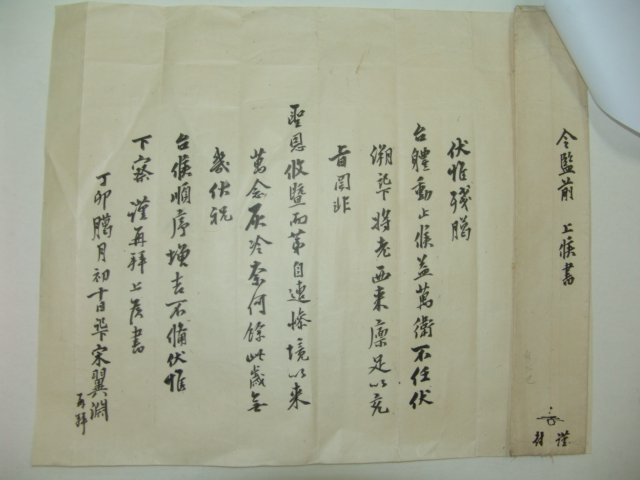 令監前 上候書
謹封
伏惟殘臘
台體動止候益萬衛不任伏
溯 將老西来廩足以充
旨 非
聖恩攸曁而第自遭慘境以来
萬念灰冷奈何餘此歲無
幾伏祝
台候順序增吉不備伏惟
下察 謹再拜上候書
丁卯臘月初十日 宋翼淵再拜